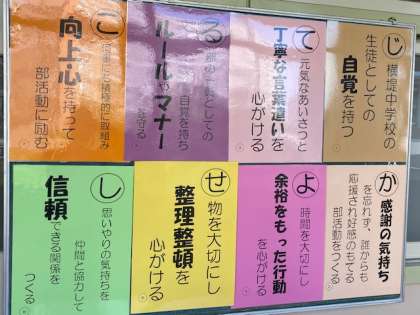 じ 横堤中学校の
生徒としての
自覚を持つ
て 元気なあいさつと
丁寧な言葉遣いを
心がける
る としての
自覚を持ち
ルールやマナー
を守る
こ 何事にも積極的に取組み
向上心を持って
部活動に励む
か 感謝の気持ち
を忘れず、誰からも
応援され好感のもてる
部活動をつくる
よ 時間を大切にし
余裕をもった行動
を心がける
せ 物を大切にし
整理整頓を
心がける
し 思いやりの気持ちを
仲間と協力して
信頼できる関係を
つくる